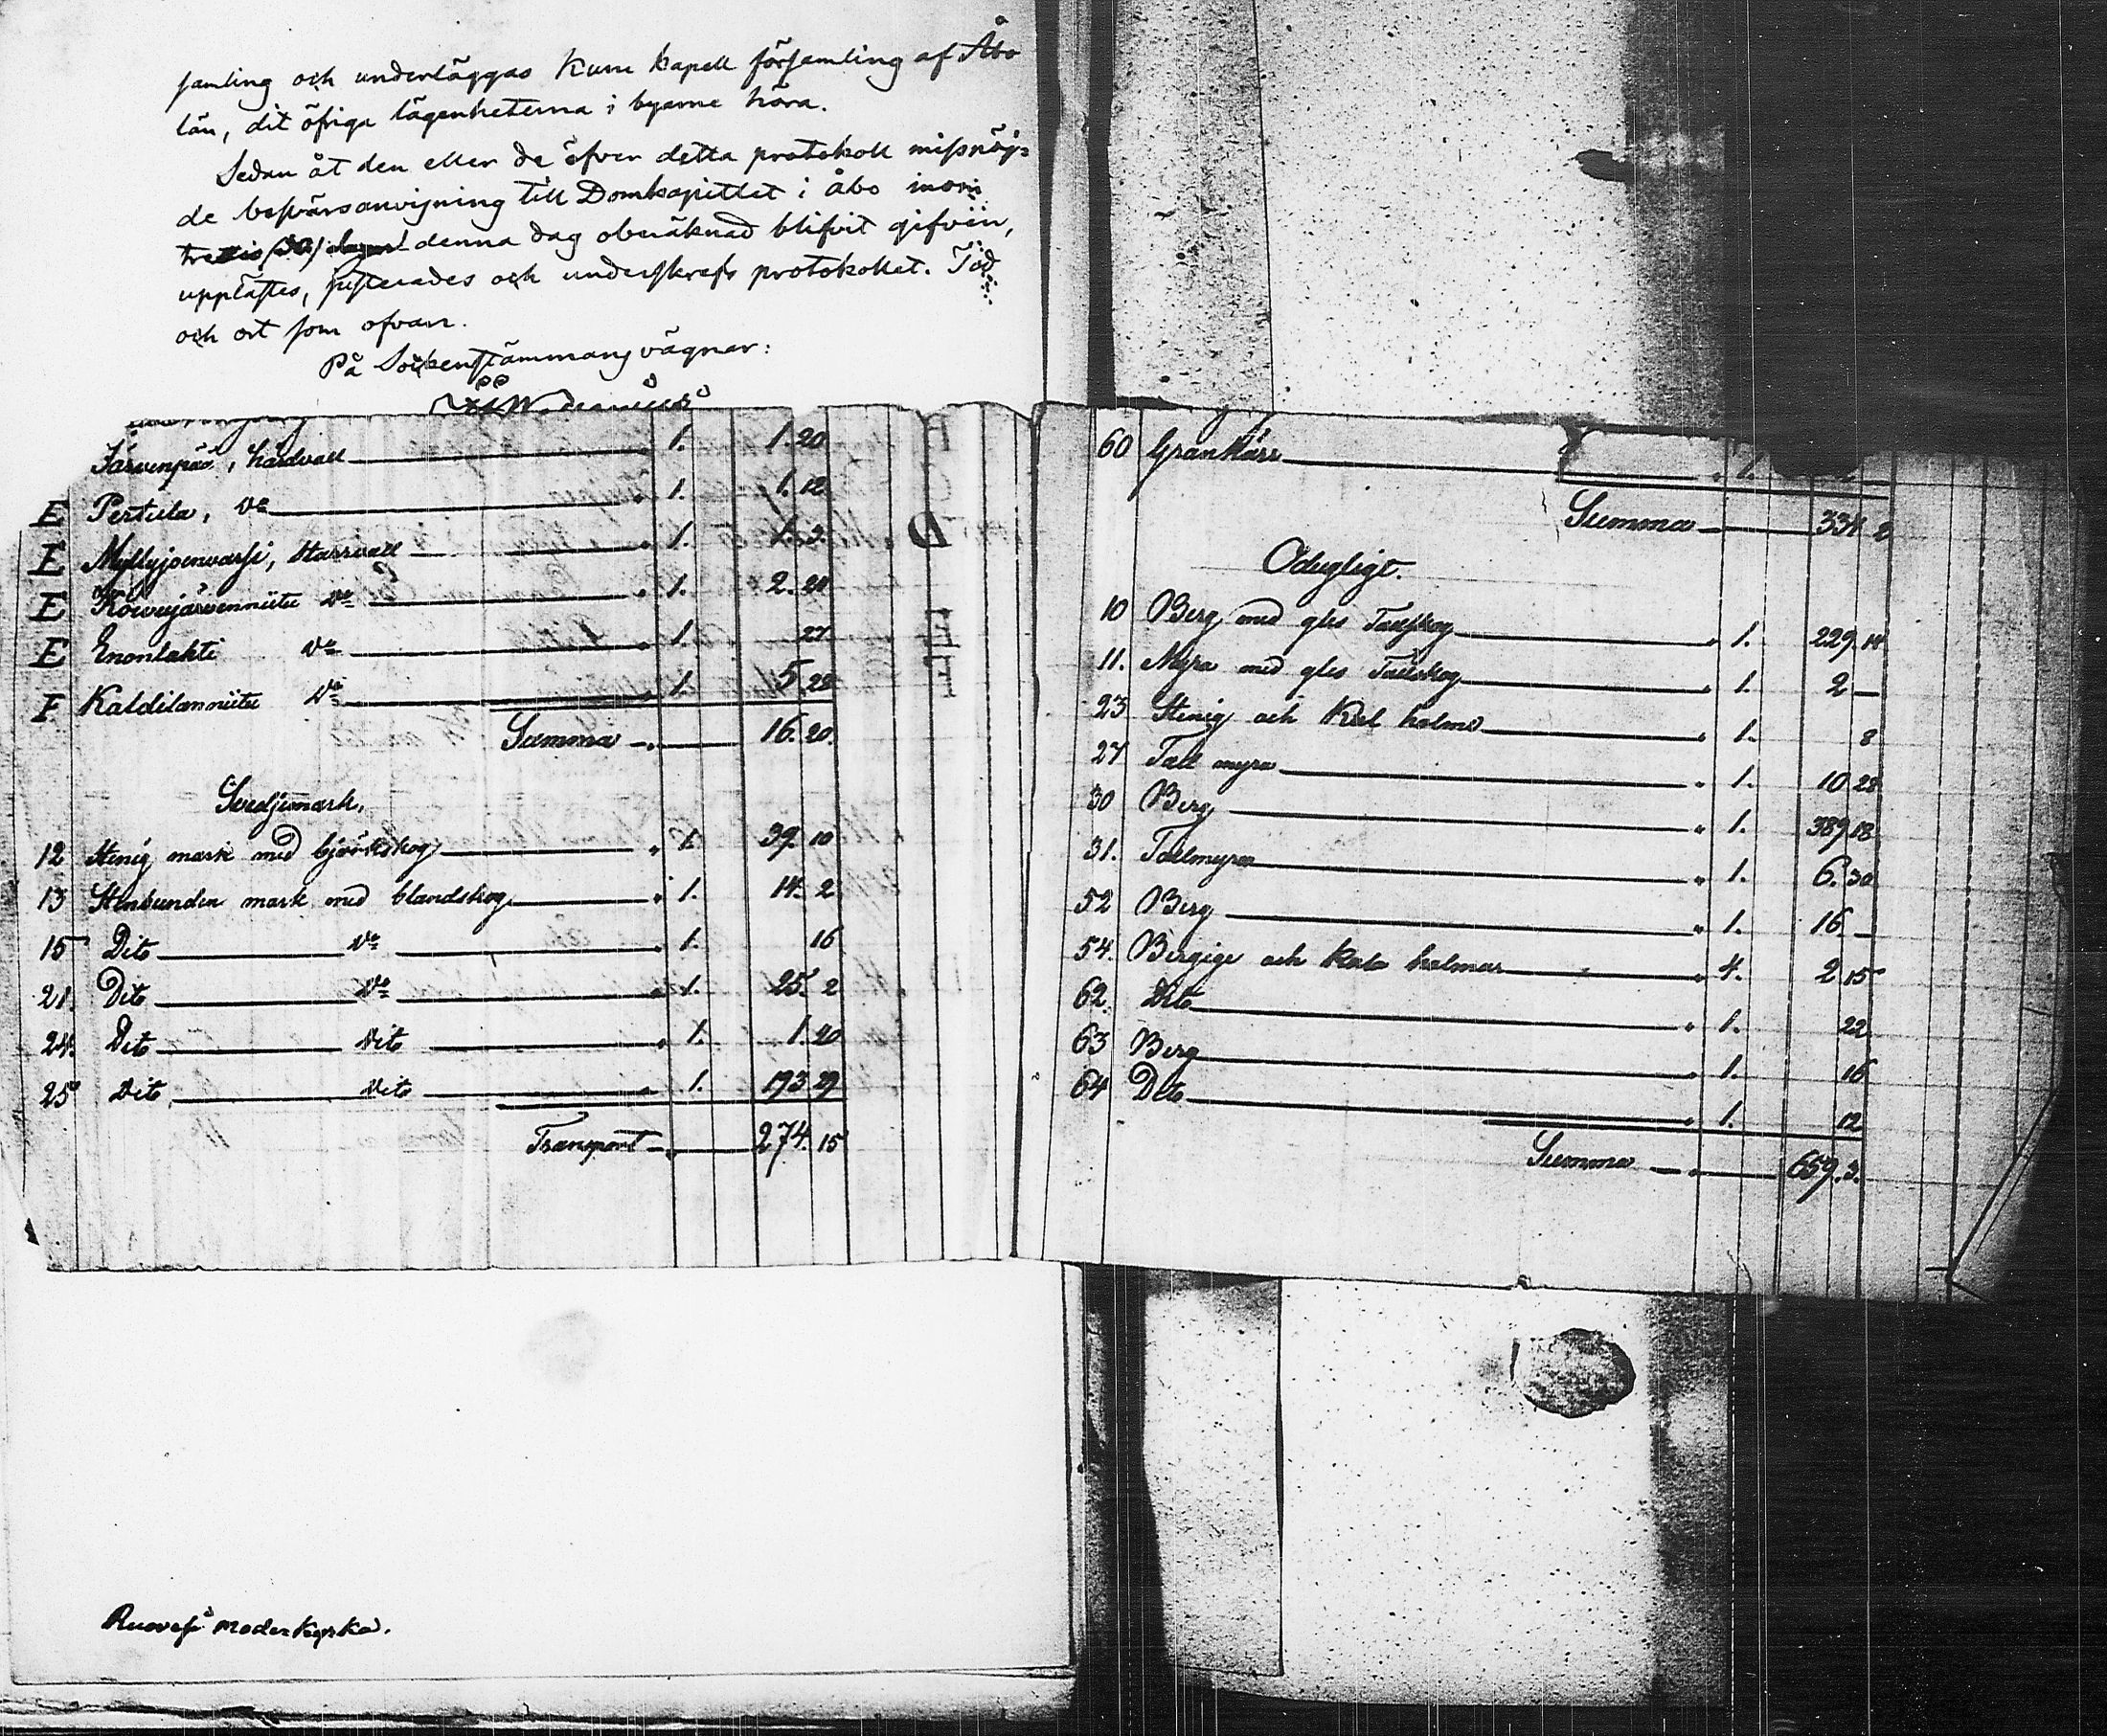 samling och underläggas Kuru kapell församling af Åbo
län, dit öfriga lägenheterna i byarne höra.
Sedan åt den eller de öfver detta protokoll missnöj=
de besvärsanvisning till Domkapitlet i Åbo inom
trettio (30) dagar denna dag oberäknad blifvit gifven,
upplästes, justerades och underskrefs protokollet. Tid
och ort som ofvan.
På Sockenstämmans vägnar:
Järvenpää, hårdvall 1. 1. 20
E Pertula, do 1. 1. 12
E Myllyjoenvarsi, starrvall 1. 1. 3.
E Koivujärvenniitu do 1. 2. 24
E Enonlahti do 1. 27
F Kaldilanniitu do 1. 5. 28
Summa 16. 20.
Svedjemark.
12 Stenig mark med björkskog 1. 39. 10
13 Stenbunden mark med blandskog 1. 14. 2
15 Dito do 1. 16
21. Dito do 1. 25. 2
24. Dito dito 1. 1. 20
25 dito dito 1. 193 29
Transport 274. 15
60 Grankärr 1.
Summa 334 2
Odugligt.
10 Berg med gles Tallskog 1. 229. 14
11. Myra med gles Tallskog 1. 2 —
23 Stenig och Kal holme 1. 8
27 Tall myra 1. 10 28
30 Berg 1. 389 18
31. Tallmyra 1. 6. 30
52 Berg 1. 16. —
54. Bergige och Kala holmar 4. 2 15
62. Dito 1. 22
63 Berg 1. 16
64 Dito 1. 12
Summa 659. 3.
Ruovesi moderkyrka.